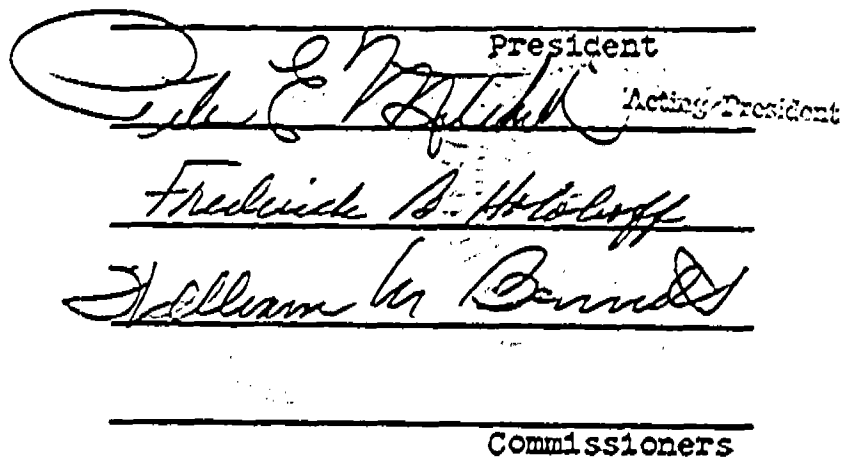 President
Peter E. Mitchell Acting President
Frederick B. Holoboff
William M Bennett
Commissioners